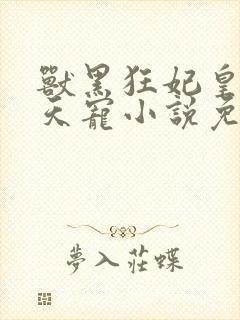 獸黑狂妃皇
天寵小說免
夢入莊蝶